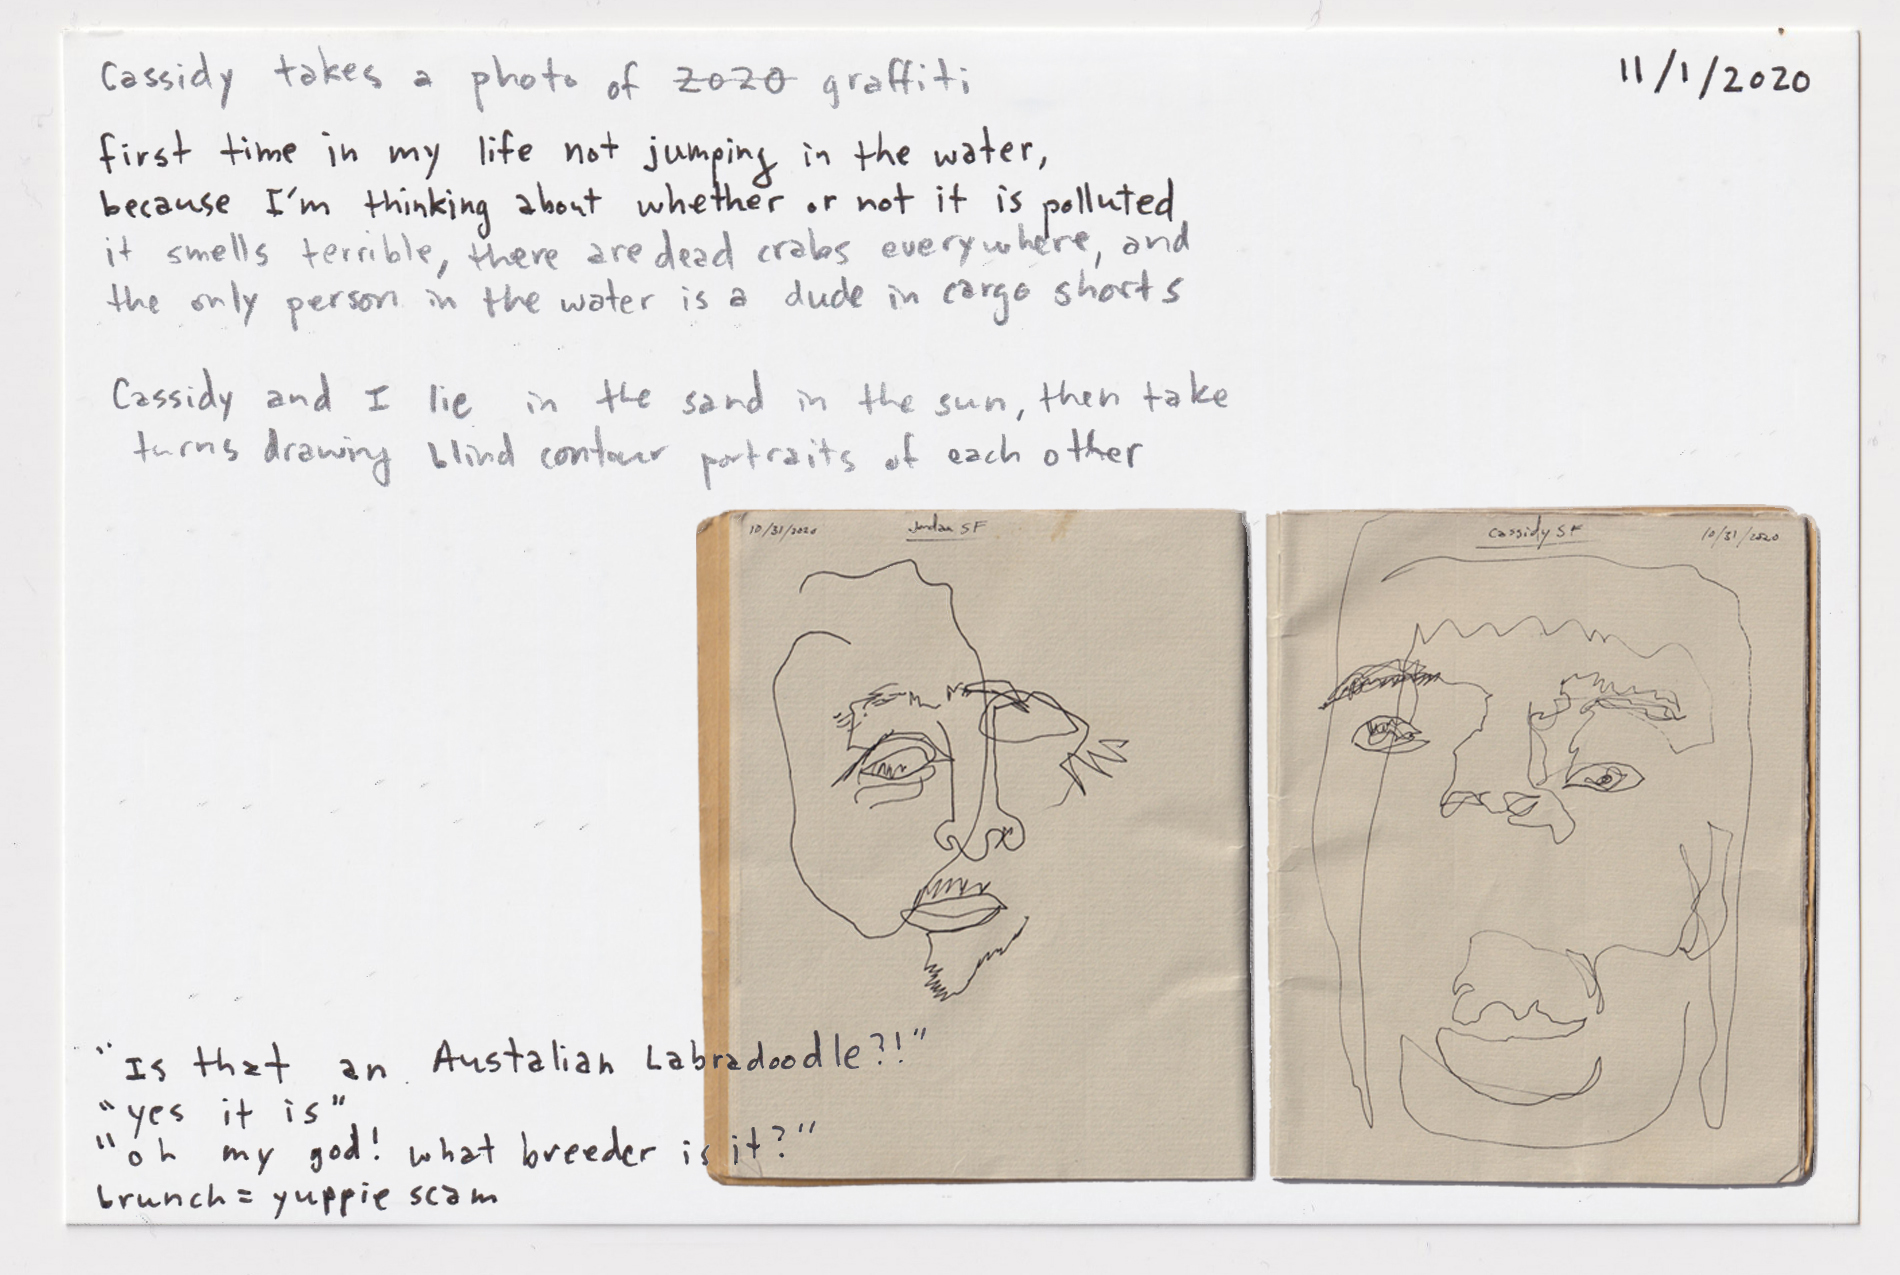 Cassidy takes a photo of 2020 graffiti
11/1/2020
first time in my life not jumping in the water,
because I'm thinking about whether or not it is polluted
it smells terrible, there are dead crabs everywhere, and
the only person in the water is a dude in cargo shorts
Cassidy and I lie in the sand in the sun, then take
turns drawing blind contour portraits of each other
10/31/2020
Jordan SF
Cassidy SF
10/31/2020
"Is that an Austalian Labradoodle?!"
"yes it is"
"oh my god! what breeder is it?"
brunch = yuppie scam